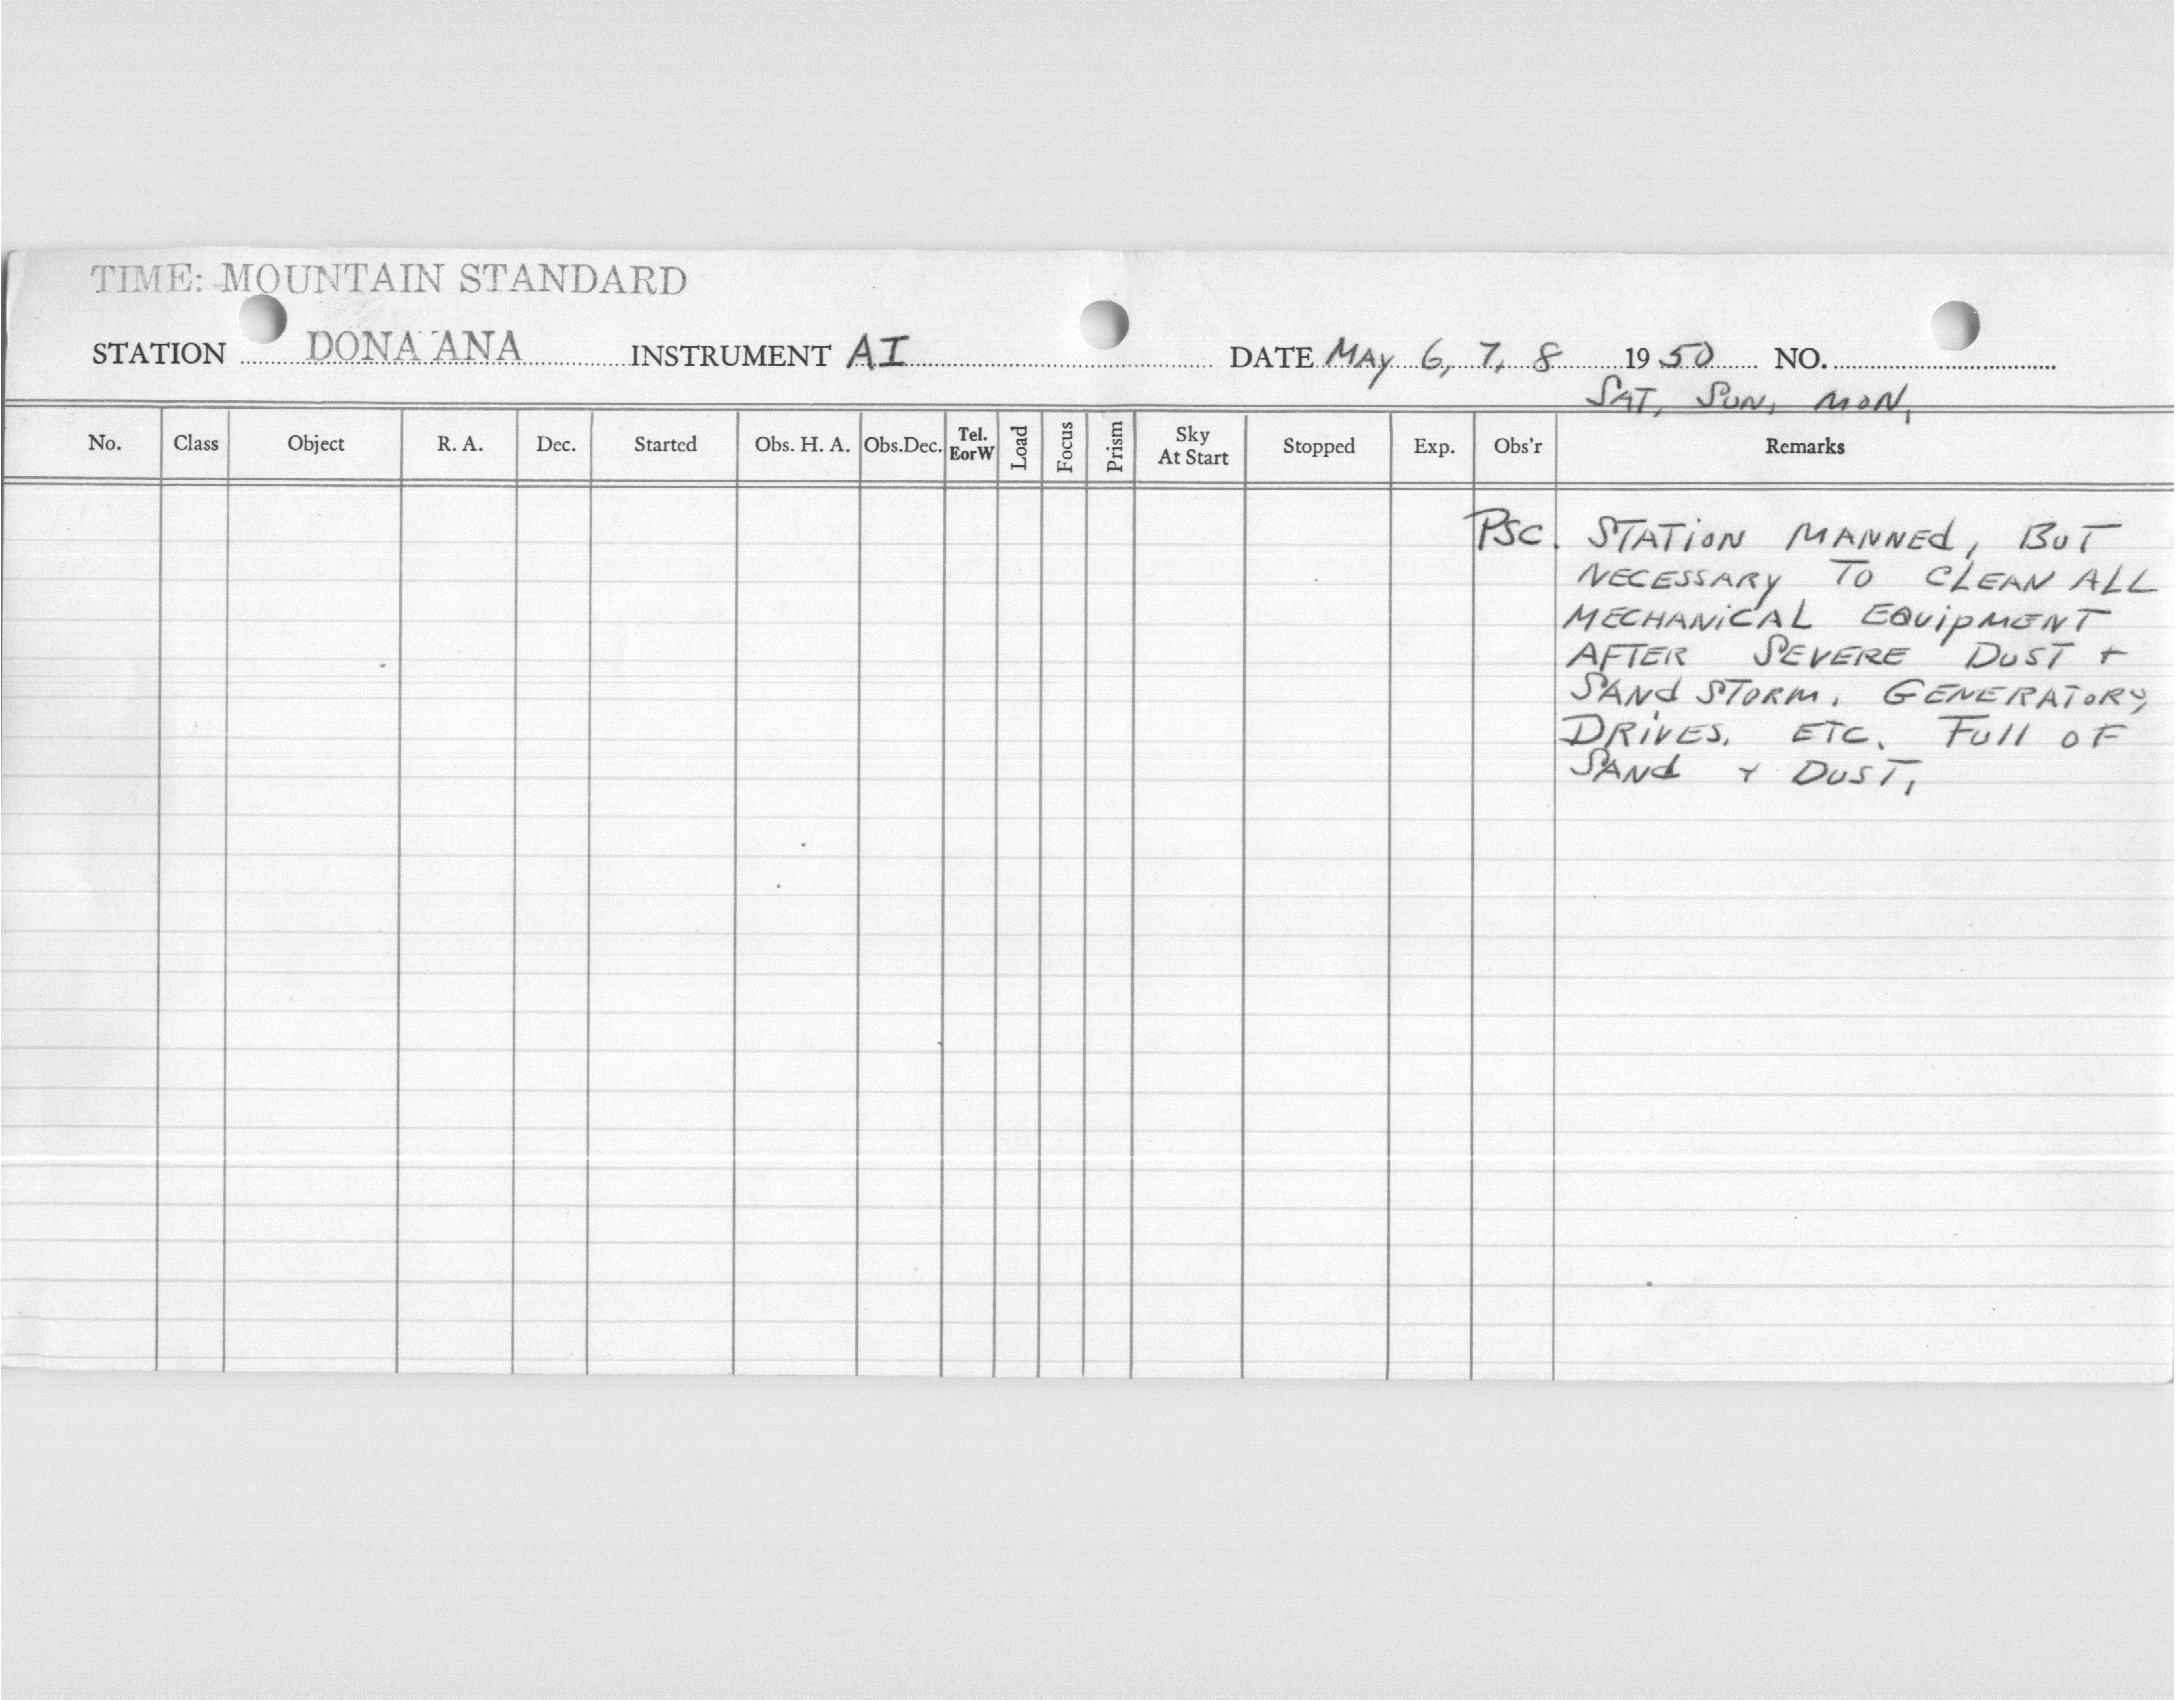 TIME: MOUNTAIN STANDARD
STATION DONA ANA INSTRUMENT AI DATE MAY 6, 7, 8 1950 NO.
SAT, SUN, MON,
No. Class Object R. A. Dec. Started Obs. H. A. Obs.Dec. Tel. EorW Load Focus Prism Sky At Start Stopped Exp. Obs'r Remarks
PSC. STATION MANNED, BUT
NECESSARY TO CLEAN ALL
MECHANICAL EQUIPMENT
AFTER SEVERE DUST +
SAND STORM. GENERATORS,
DRIVES, ETC. FULL OF
SAND + DUST,